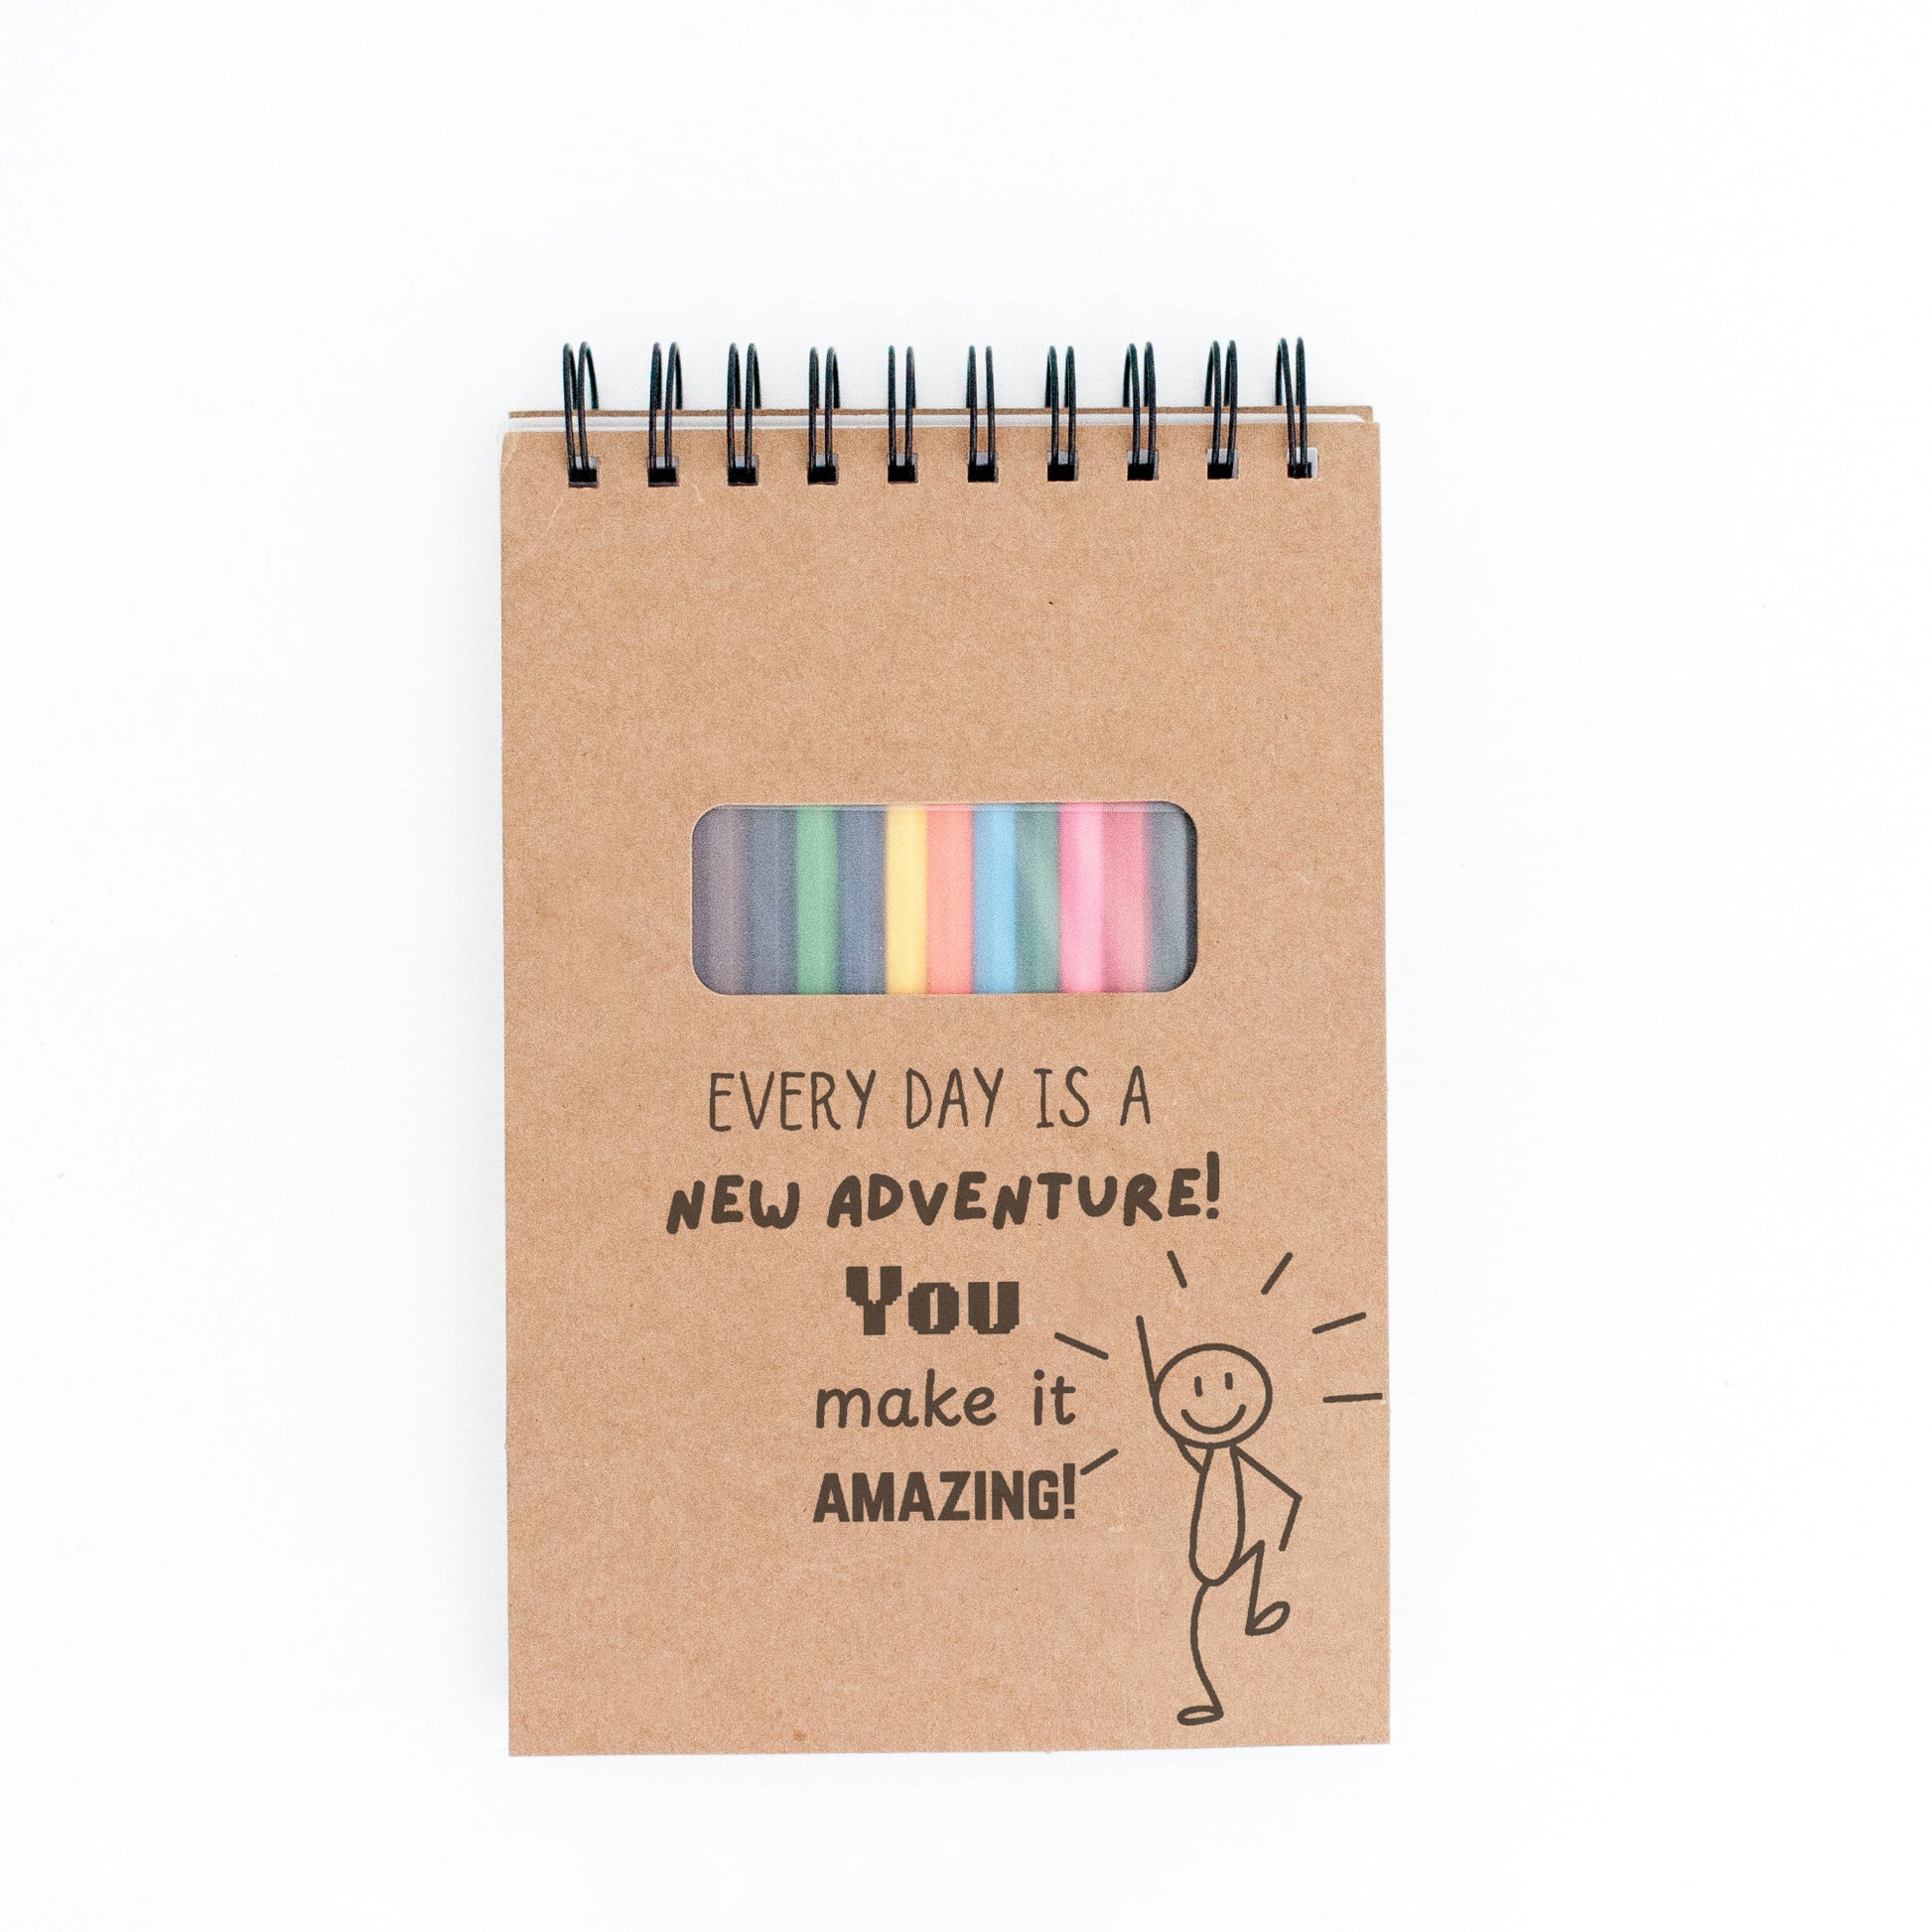 EVERY DAY IS A
NEW ADVENTURE!
You
make it
AMAZING!